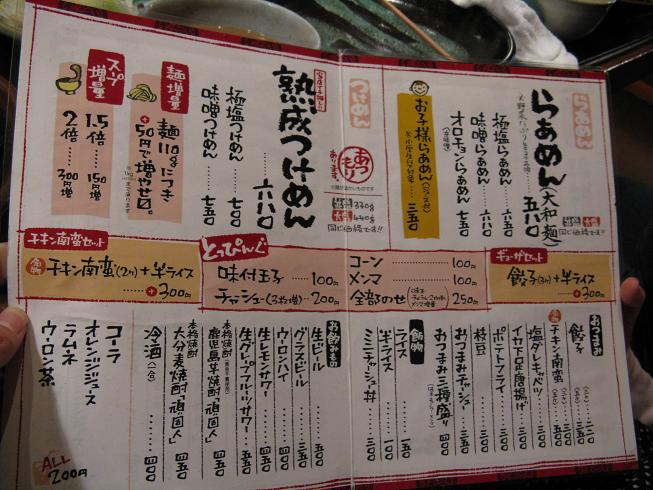 らぁめん
らぁめん(大和麺) 五八〇
極塩らぁめん 六三五
味噌らぁめん 六八五
オロチョンらぁめん 七五〇
お子様らぁめん(ジュース付) 三五〇
つけめん
熟成つけめん 六八〇
あつもり
あります。
並盛 330g
大盛 440g
同じ価格です!!
極塩つけめん 七〇〇
味噌つけめん 七五〇
麺増量
麺110gにつき
+50円で増やせ〼。
スープ増量
1.5倍 150円増
2倍 300円増
チキン南蛮セット
名物 チキン南蛮(2ヶ)+半ライス
+300円
とっぴんぐ
味付玉子 100円
チャーシュー(3枚増) 200円
コーン 100円
メンマ 100円
全部のせ 250円
ギョーザセット
餃子(3ヶ)+半ライス
+300円
おつまみ
餃子
名物 チキン南蛮
塩ダレキャベツ
イカ下足唐揚げ
ポテトフライ
枝豆
おつまみチャーシュー
おつまみ三種盛り
御飯
ライス 一五〇
半ライス 一〇〇
ミニチャーシュー丼 三〇〇
お飲みもの
生ビール 五五〇
グラスビール 三五〇
ウーロンハイ 四〇〇
生レモンサワー 四五〇
生グレープフルーツサワー 五五〇
本格焼酎
鹿児島芋焼酎「頑固人」 四五〇
本格焼酎
大分麦焼酎「頑固人」 四五〇
冷酒 四〇〇
コーラ
オレンジジュース
ラムネ
ウーロン茶
ALL
200円